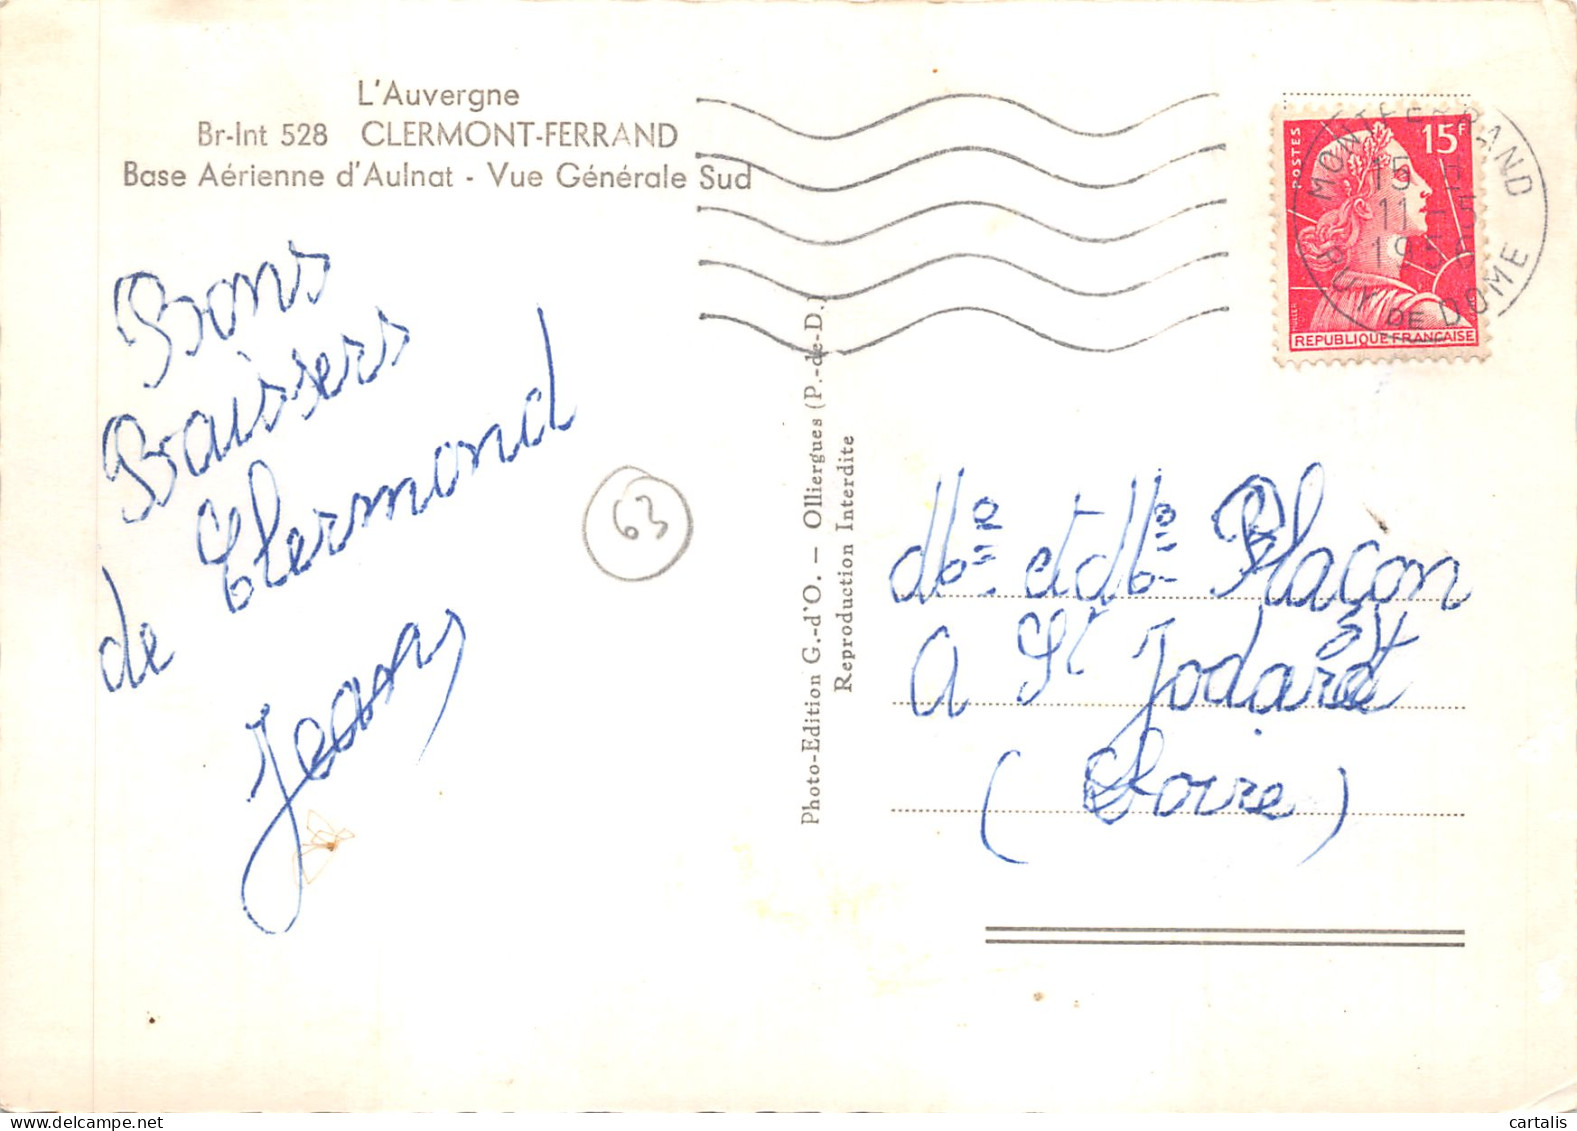 L'Auvergne
Br-Int 528 CLERMONT-FERRAND
Base Aérienne d'Aulnat - Vue Générale Sud
Bons
Baissers
de Clermond
63
Photo-Edition G.-d'O. — Olliergues (P.-de-D.)
Reproduction Interdite
POSTES
15F
REPUBLIQUE FRANÇAISE
MONTFERRAND
15
11 - 5
1956
PUY DE DOME
Mr et Mme Plaçon
A St Jodard
(Loire)
www.delcampe.net
cartalis